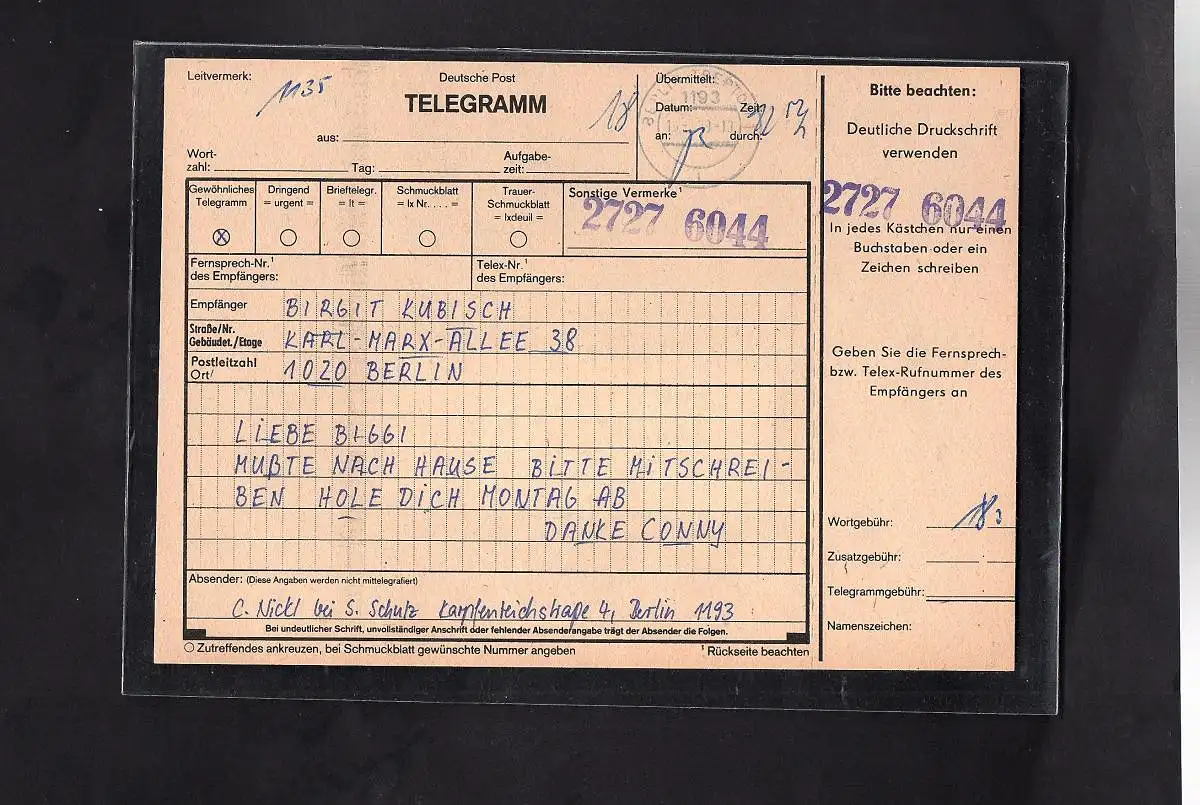 Leitvermerk:
1135
Deutsche Post
TELEGRAMM
aus:
18
Übermittelt:
Datum:
Zeit:
an:
durch:
1193
Wort-
zahl:
Tag:
Aufgabe-
zeit:
Gewöhnliches
Telegramm
Dringend
= urgent =
Brieftelegr.
= lt =
Schmuckblatt
= lx Nr. . . . . =
Trauer-
Schmuckblatt
= lxdeuil =
Sonstige Vermerke¹
2727 6044
Fernsprech-Nr.¹
des Empfängers:
Telex-Nr.¹
des Empfängers:
Empfänger
BIRGIT KUBISCH
Straße/Nr.
Gebäudet./Etage
KARL-MARX-ALLEE 38
Postleitzahl
Ort/
1020 BERLIN
LIEBE BIGGI
MUßTE NACH HAUSE BITTE MITSCHREI-
BEN HOLE DICH MONTAG AB
DANKE CONNY
Absender: (Diese Angaben werden nicht mittelegrafiert)
C. Nickl bei S. Schulz Karpfenteichstraße 4, Berlin 1193
Bei undeutlicher Schrift, unvollständiger Anschrift oder fehlender Absenderangabe trägt der Absender die Folgen.
Zutreffendes ankreuzen, bei Schmuckblatt gewünschte Nummer angeben
¹ Rückseite beachten
Bitte beachten:
Deutliche Druckschrift
verwenden
2727 6044
In jedes Kästchen nur einen
Buchstaben oder ein
Zeichen schreiben
Geben Sie die Fernsprech-
bzw. Telex-Rufnummer des
Empfängers an
Wortgebühr:
Zusatzgebühr:
Telegrammgebühr:
Namenszeichen: